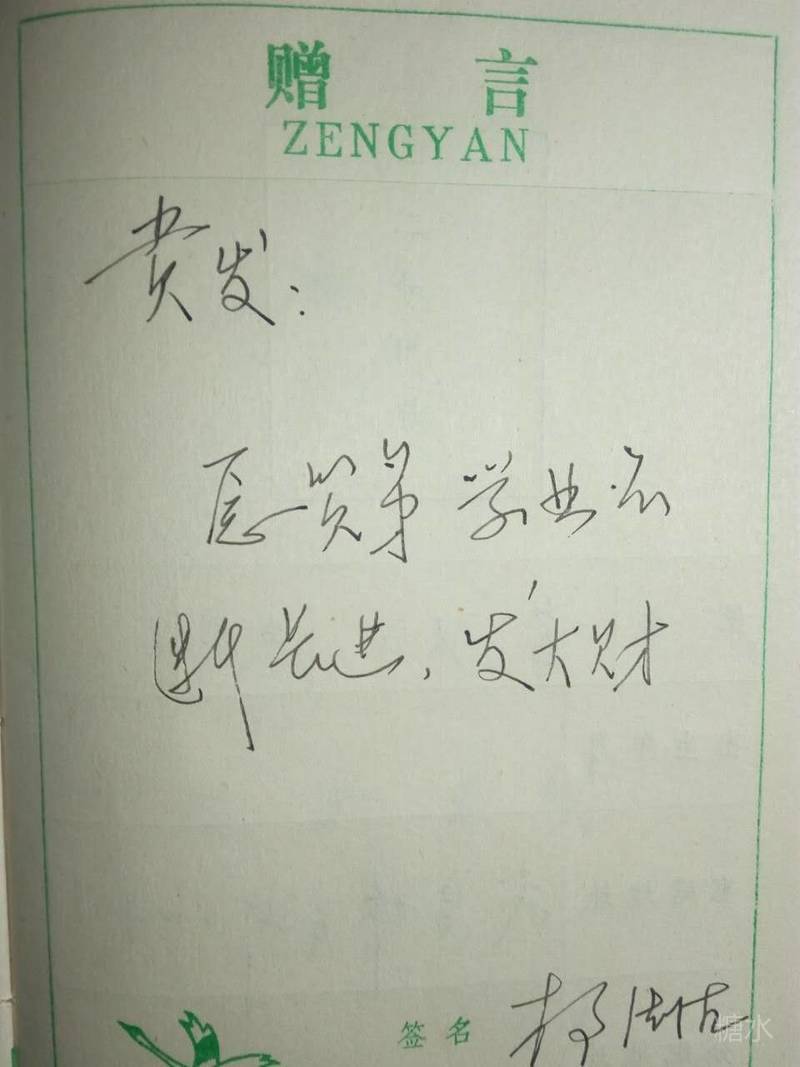 赠 言
ZENGYAN
贵发：
愿贤弟学业不
断长进，发大财
签名 杨
糖水